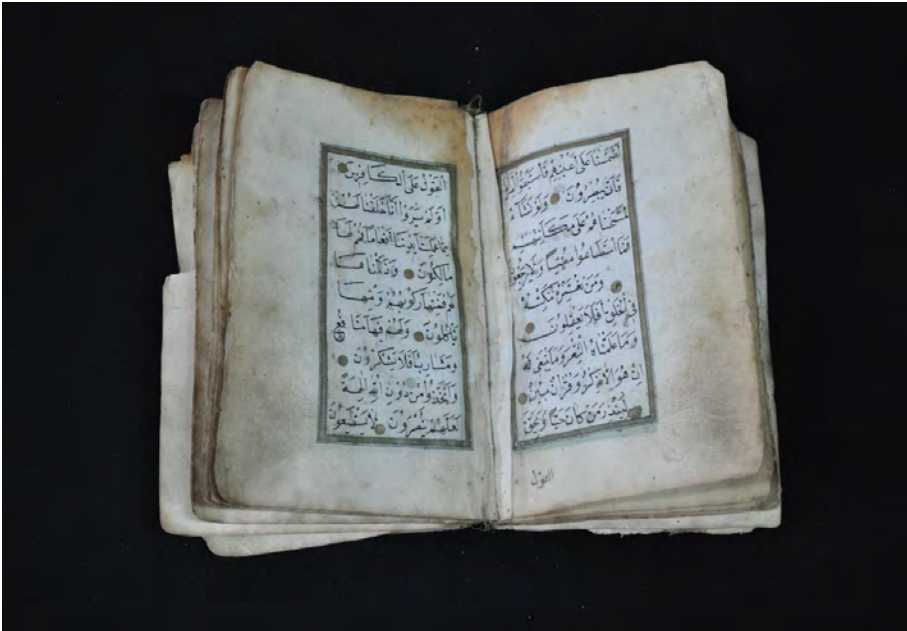 لَطَمَسْنَا عَلَى اَعْيُنِهِمْ فَاسْتَبَقُوا الصِّرَاطَ
فَاَنّٰى يُبْصِرُونَ وَلَوْ نَشَاءُ
لَمَسَخْنَاهُمْ عَلَى مَكَانَتِهِمْ
فَمَا اسْتَطَاعُوا مُضِيًّا وَلَا يَرْجِعُونَ
وَمَنْ نُعَمِّرْهُ نُنَكِّسْهُ
فِي الْخَلْقِ اَفَلَا يَعْقِلُونَ
وَمَا عَلَّمْنَاهُ الشِّعْرَ وَمَا يَنْبَغِي لَهُ
اِنْ هُوَ اِلَّا ذِكْرٌ وَقُرْاٰنٌ مُبِينٌ
لِيُنْذِرَ مَنْ كَانَ حَيًّا وَيَحِقَّ
القول
الْقَوْلُ عَلَى الْكَافِرِينَ
اَوَلَمْ يَرَوْا اَنَّا خَلَقْنَا لَهُمْ
مِمَّا عَمِلَتْ اَيْدِينَا اَنْعَامًا فَهُمْ لَهَا
مَالِكُونَ وَذَلَّلْنَاهَا
لَهُمْ فَمِنْهَا رَكُوبُهُمْ وَمِنْهَا
يَاْكُلُونَ وَلَهُمْ فِيهَا مَنَافِعُ
وَمَشَارِبُ اَفَلَا يَشْكُرُونَ
وَاتَّخَذُوا مِنْ دُونِ اللّٰهِ اٰلِهَةً
لَعَلَّهُمْ يُنْصَرُونَ لَا يَسْتَطِيعُونَ